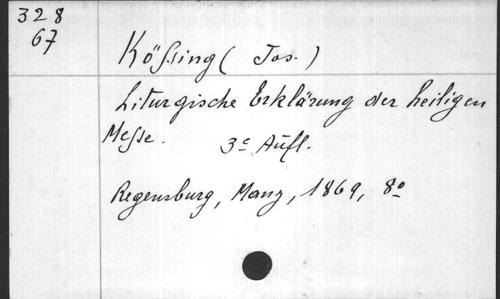 328
67
Kößing ( Jos. )
Liturgische Erklärung der heiligen
Meße. 3e Aufl.
Regensburg, Manz, 1869, 8o